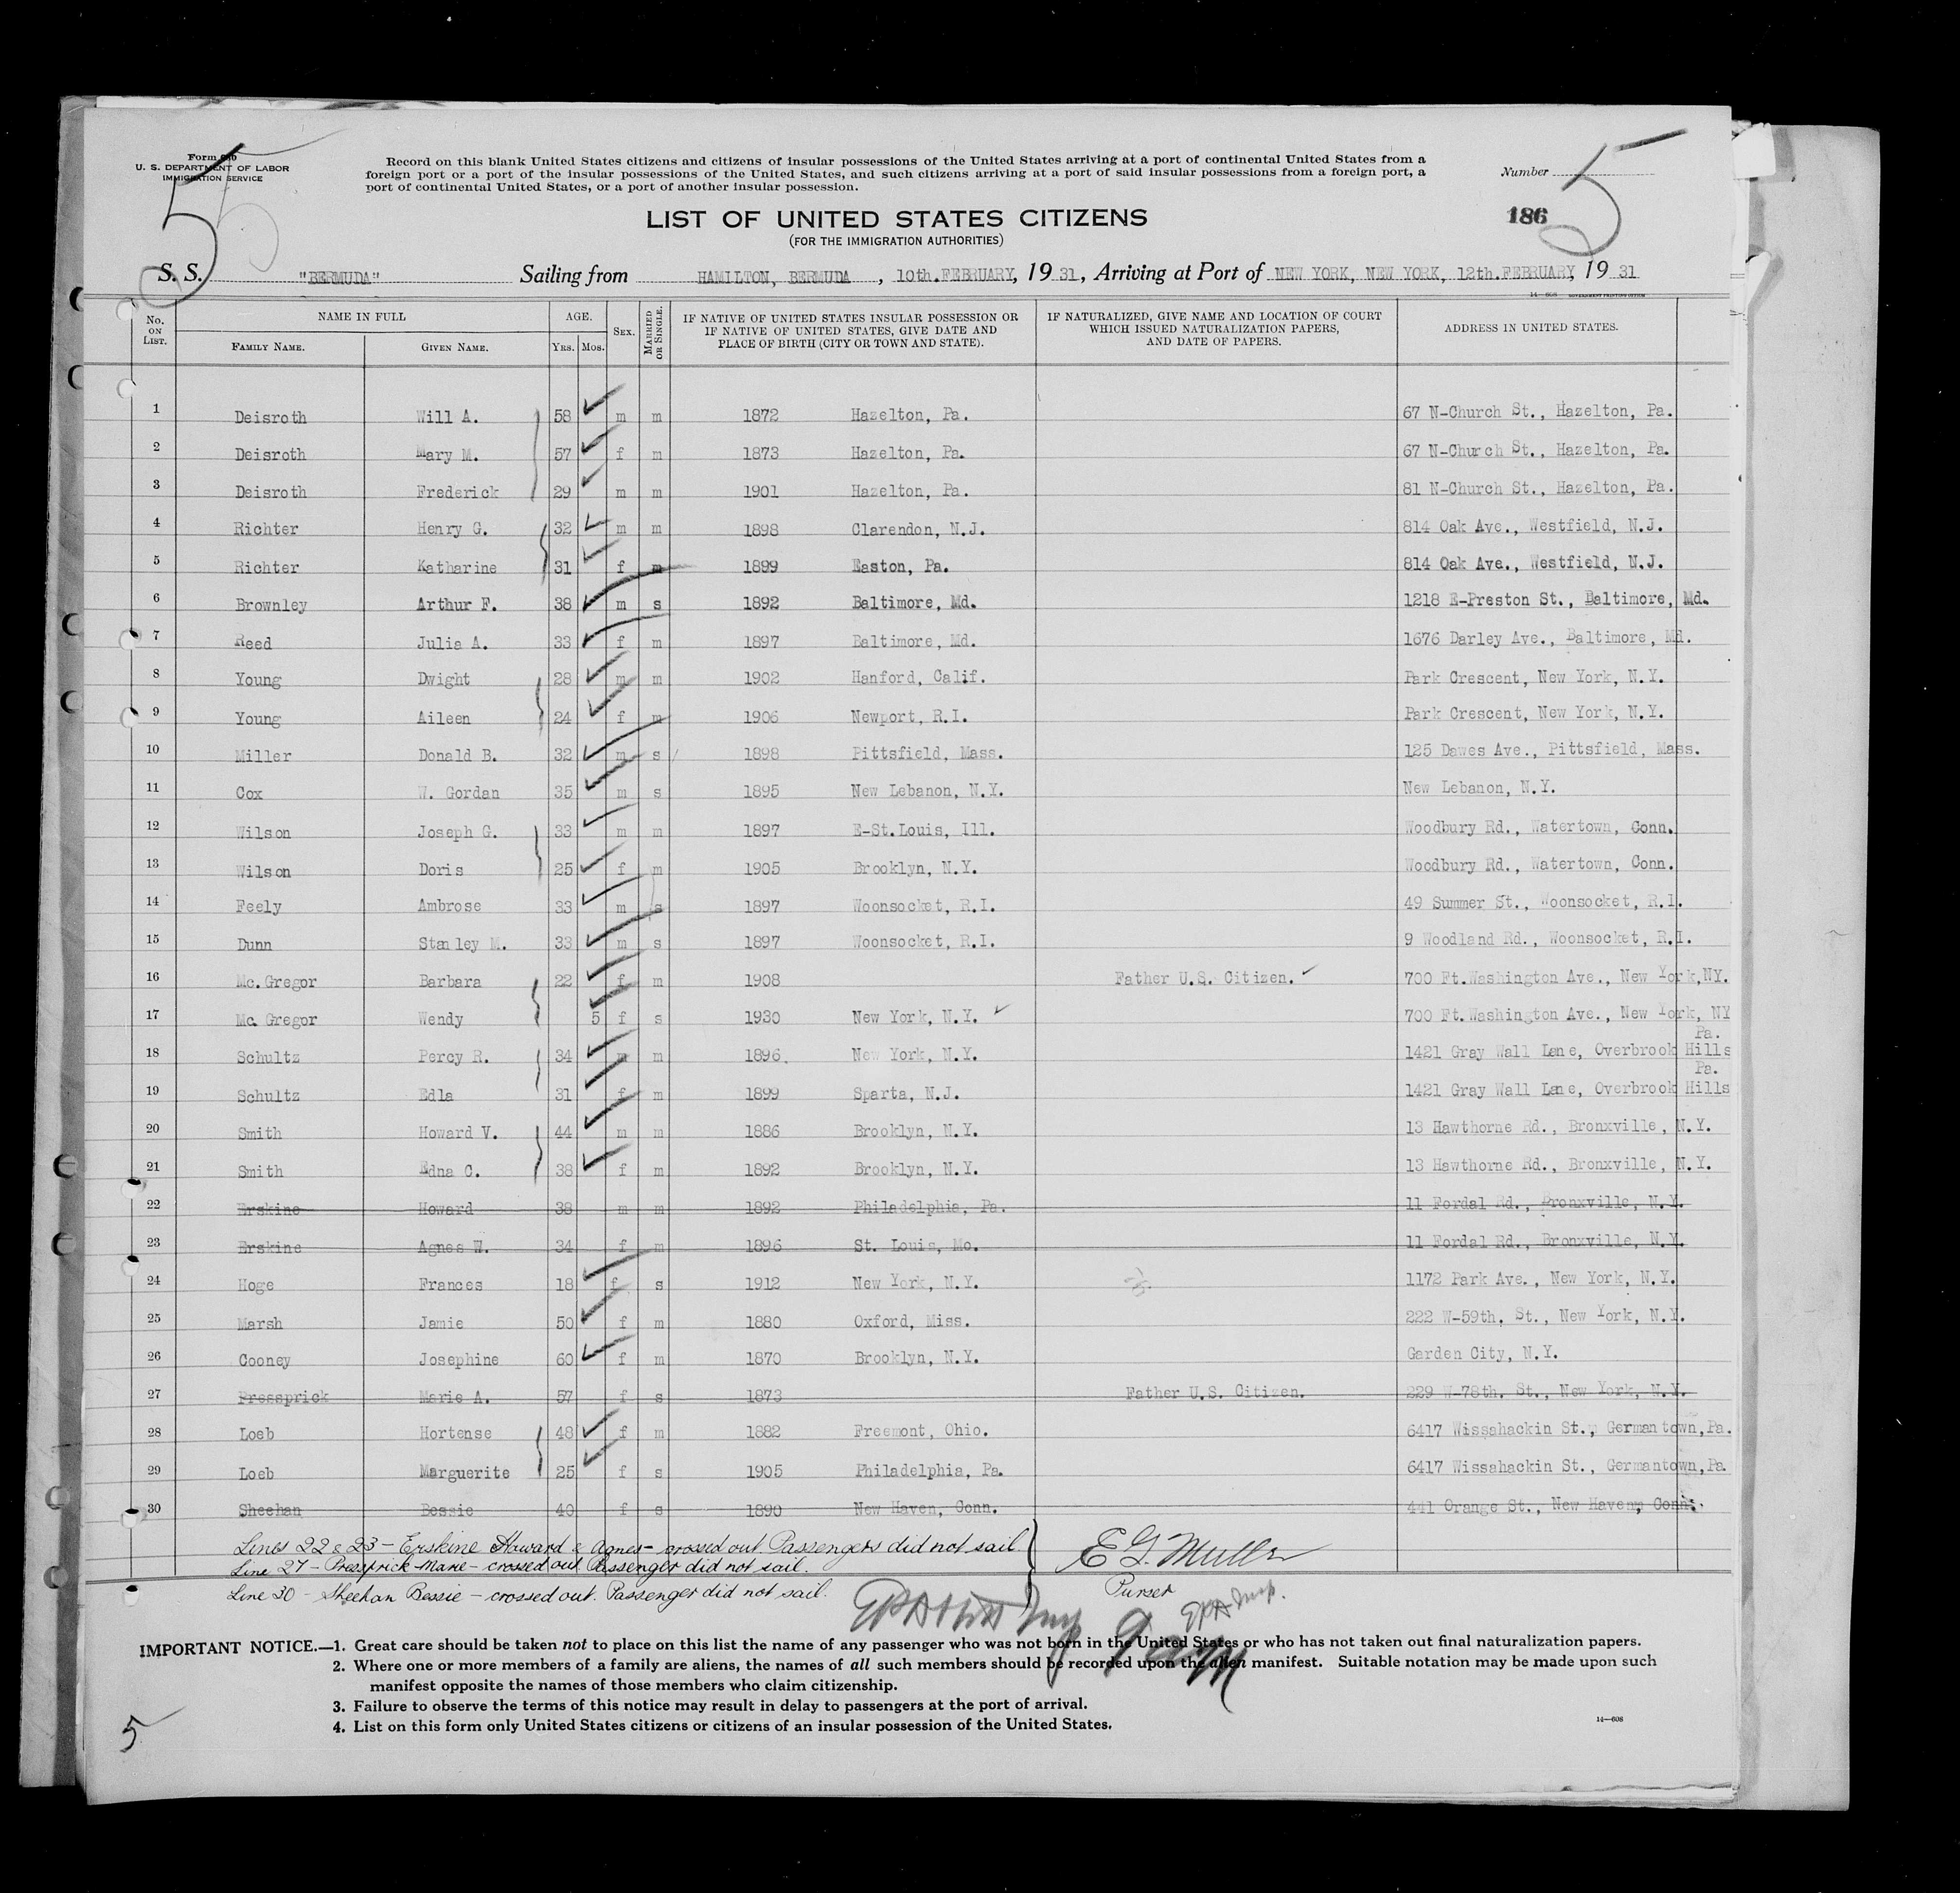 5
5
5
Form 630
U. S. DEPARTMENT OF LABOR
IMMIGRATION SERVICE
Record on this blank United States citizens and citizens of insular possessions of the United States arriving at a port of continental United States from a
foreign port or a port of the insular possessions of the United States, and such citizens arriving at a port of said insular possessions from a foreign port, a
port of continental United States, or a port of another insular possession.
Number
186
LIST OF UNITED STATES CITIZENS
(FOR THE IMMIGRATION AUTHORITIES)
S. S. "BERMUDA" Sailing from HAMILTON, BERMUDA, 10th. FEBRUARY, 1931, Arriving at Port of NEW YORK, NEW YORK, 12th. FEBRUARY, 1931
14—608 GOVERNMENT PRINTING OFFICE
No. ON LIST. NAME IN FULL FAMILY NAME. GIVEN NAME. AGE. YRS. MOS. SEX. MARRIED OR SINGLE. IF NATIVE OF UNITED STATES INSULAR POSSESSION OR IF NATIVE OF UNITED STATES, GIVE DATE AND PLACE OF BIRTH (CITY OR TOWN AND STATE). IF NATURALIZED, GIVE NAME AND LOCATION OF COURT WHICH ISSUED NATURALIZATION PAPERS, AND DATE OF PAPERS. ADDRESS IN UNITED STATES.
1 Deisroth Will A. 58 m m 1872 Hazelton, Pa. 67 N-Church St., Hazelton, Pa.
2 Deisroth Mary M. 57 f m 1873 Hazelton, Pa. 67 N-Church St., Hazelton, Pa.
3 Deisroth Frederick 29 m m 1901 Hazelton, Pa. 81 N-Church St., Hazelton, Pa.
4 Richter Henry G. 32 m m 1898 Clarendon, N.J. 814 Oak Ave., Westfield, N.J.
5 Richter Katharine 31 f m 1899 Easton, Pa. 814 Oak Ave., Westfield, N.J.
6 Brownley Arthur F. 38 m s 1892 Baltimore, Md. 1218 E-Preston St., Baltimore, Md.
7 Reed Julia A. 33 f m 1897 Baltimore, Md. 1676 Darley Ave., Baltimore, Md.
8 Young Dwight 28 m m 1902 Hanford, Calif. Park Crescent, New York, N.Y.
9 Young Aileen 24 f m 1906 Newport, R.I. Park Crescent, New York, N.Y.
10 Miller Donald B. 32 m s 1898 Pittsfield, Mass. 125 Dawes Ave., Pittsfield, Mass.
11 Cox W. Gordan 35 m s 1895 New Lebanon, N.Y. New Lebanon, N.Y.
12 Wilson Joseph G. 33 m m 1897 E-St.Louis, Ill. Woodbury Rd., Watertown, Conn.
13 Wilson Doris 25 f m 1905 Brooklyn, N.Y. Woodbury Rd., Watertown, Conn.
14 Feely Ambrose 33 m s 1897 Woonsocket, R.I. 49 Summer St., Woonsocket, R.I.
15 Dunn Stanley M. 33 m s 1897 Woonsocket, R.I. 9 Woodland Rd., Woonsocket, R.I.
16 Mc.Gregor Barbara 22 f m 1908 Father U.S. Citizen. 700 Ft.Washington Ave., New York,NY.
17 Mc.Gregor Wendy 5 f s 1930 New York, N.Y. 700 Ft.Washington Ave., New York, NY
18 Schultz Percy R. 34 m m 1896. New York, N.Y. 1421 Gray Wall Lane, Overbrook Hills Pa.
19 Schultz Edla 31 f m 1899 Sparta, N.J. 1421 Gray Wall Lane, Overbrook Hills Pa.
20 Smith Howard V. 44 m m 1886 Brooklyn, N.Y. 13 Hawthorne Rd., Bronxville, N.Y.
21 Smith Edna C. 38 f m 1892 Brooklyn, N.Y. 13 Hawthorne Rd., Bronxville, N.Y.
22 Erskine Howard 38 m m 1892 Philadelphia, Pa. 11 Fordal Rd., Bronxville, N.Y.
23 Erskine Agnes W. 34 f m 1896 St. Louis, Mo. 11 Fordal Rd., Bronxville, N.Y.
24 Hoge Frances 18 f s 1912 New York, N.Y. 1172 Park Ave., New York, N.Y.
25 Marsh Jamie 50 f m 1880 Oxford, Miss. 222 W-59th. St., New York, N.Y.
26 Cooney Josephine 60 f m 1870 Brooklyn, N.Y. Garden City, N.Y.
27 Pressprick Marie A. 57 f s 1873 Father U.S. Citizen. 229 W-78th. St., New York, N.Y.
28 Loeb Hortense 48 f m 1882 Freemont, Ohio. 6417 Wissahackin St., Germantown,Pa.
29 Loeb Marguerite 25 f s 1905 Philadelphia, Pa. 6417 Wissahackin St., Germantown,Pa.
30 Sheehan Bessie 40 f s 1890 New Haven, Conn. 441 Orange St., New Haven, Conn.
Lines 22 & 23 - Erskine Howard & Agnes - crossed out. Passengers did not sail.
Line 27 - Pressprick Marie - crossed out. Passenger did not sail.
Line 30 - Sheehan Bessie - crossed out. Passenger did not sail.
E G. Muller
Purser
IMPORTANT NOTICE.—1. Great care should be taken not to place on this list the name of any passenger who was not born in the United States or who has not taken out final naturalization papers.
2. Where one or more members of a family are aliens, the names of all such members should be recorded upon the alien manifest. Suitable notation may be made upon such
manifest opposite the names of those members who claim citizenship.
3. Failure to observe the terms of this notice may result in delay to passengers at the port of arrival.
4. List on this form only United States citizens or citizens of an insular possession of the United States.
14—608
5